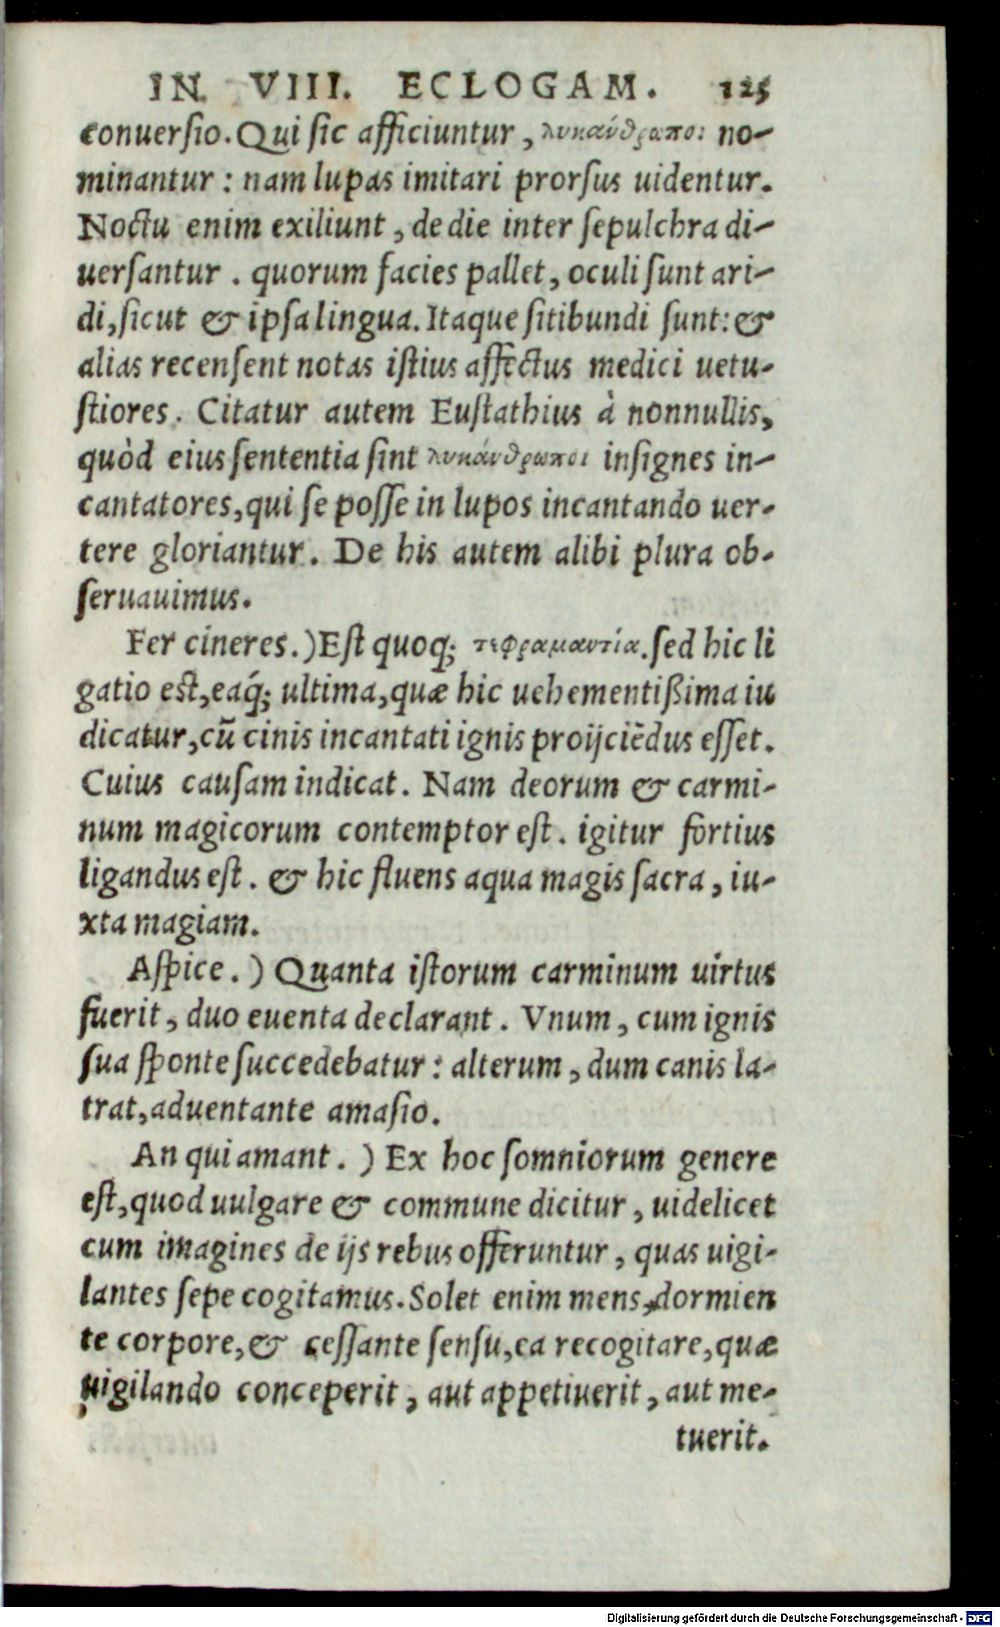 IN. VIII. ECLOGAM. 125
conuersio. Qui sic afficiuntur, λυκάνθρωποι no-
minantur: nam lupas imitari prorsus uidentur.
Noctu enim exiliunt, de die inter sepulchra di-
uersantur. quorum facies pallet, oculi sunt ari-
di, sicut & ipsa lingua. Itaque sitibundi sunt: &
alias recensent notas istius affectus medici uetu-
stiores. Citatur autem Eustathius à nonnullis,
quòd eius sententia sint λυκάνθρωποι insignes in-
cantatores, qui se posse in lupos incantando uer-
tere gloriantur. De his autem alibi plura ob-
seruauimus.
Fer cineres.) Est quoq; τεφραμαντία. sed hic li
gatio est, eaq́; ultima, quæ hic uehementißima iu
dicatur, cū cinis incantati ignis proijciēdus esset.
Cuius causam indicat. Nam deorum & carmi-
num magicorum contemptor est. igitur fortius
ligandus est. & hic fluens aqua magis sacra, iu-
xta magiam.
Aspice.) Quanta istorum carminum uirtus
fuerit, duo euenta declarant. Vnum, cum ignis
sua sponte succedebatur: alterum, dum canis la-
trat, aduentante amasio.
An qui amant.) Ex hoc somniorum genere
est, quod uulgare & commune dicitur, uidelicet
cum imagines de ijs rebus offeruntur, quas uigi-
lantes sepe cogitamus. Solet enim mens, dormien
te corpore, & cessante sensu, ea recogitare, quæ
uigilando conceperit, aut appetiuerit, aut me-
tuerit.
Digitalisierung gefördert durch die Deutsche Forschungsgemeinschaft - DFG